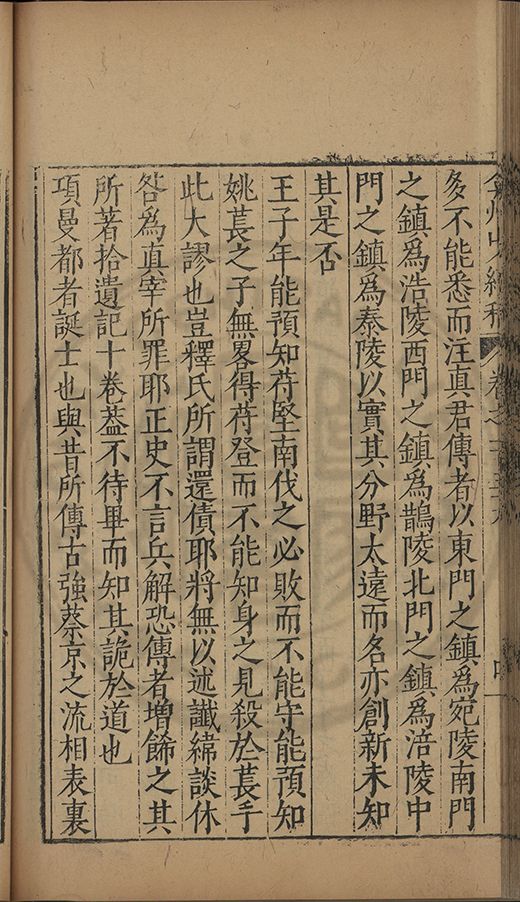 卷之
多不能悉而注真君傳者以東門之鎮爲宛陵南門
之鎮爲浩陵西門之鎮爲鵲陵北門之鎮爲涪陵中
門之鎮爲泰陵以實其分野太遠而名亦創新未知
其是否
王子年能預知苻堅南伐之必敗而不能守能預知
姚萇之子無畧得苻登而不能知身之見殺於萇乎
此大謬也豈釋氏所謂還債耶將無以述讖緯談休
咎爲真宰所罪耶正史不言兵解恐傳者增餙之其
所著拾遺記十卷葢不待畢而知其詭於道也
項曼都者誕士也與昔所傳古強蔡京之流相表裏